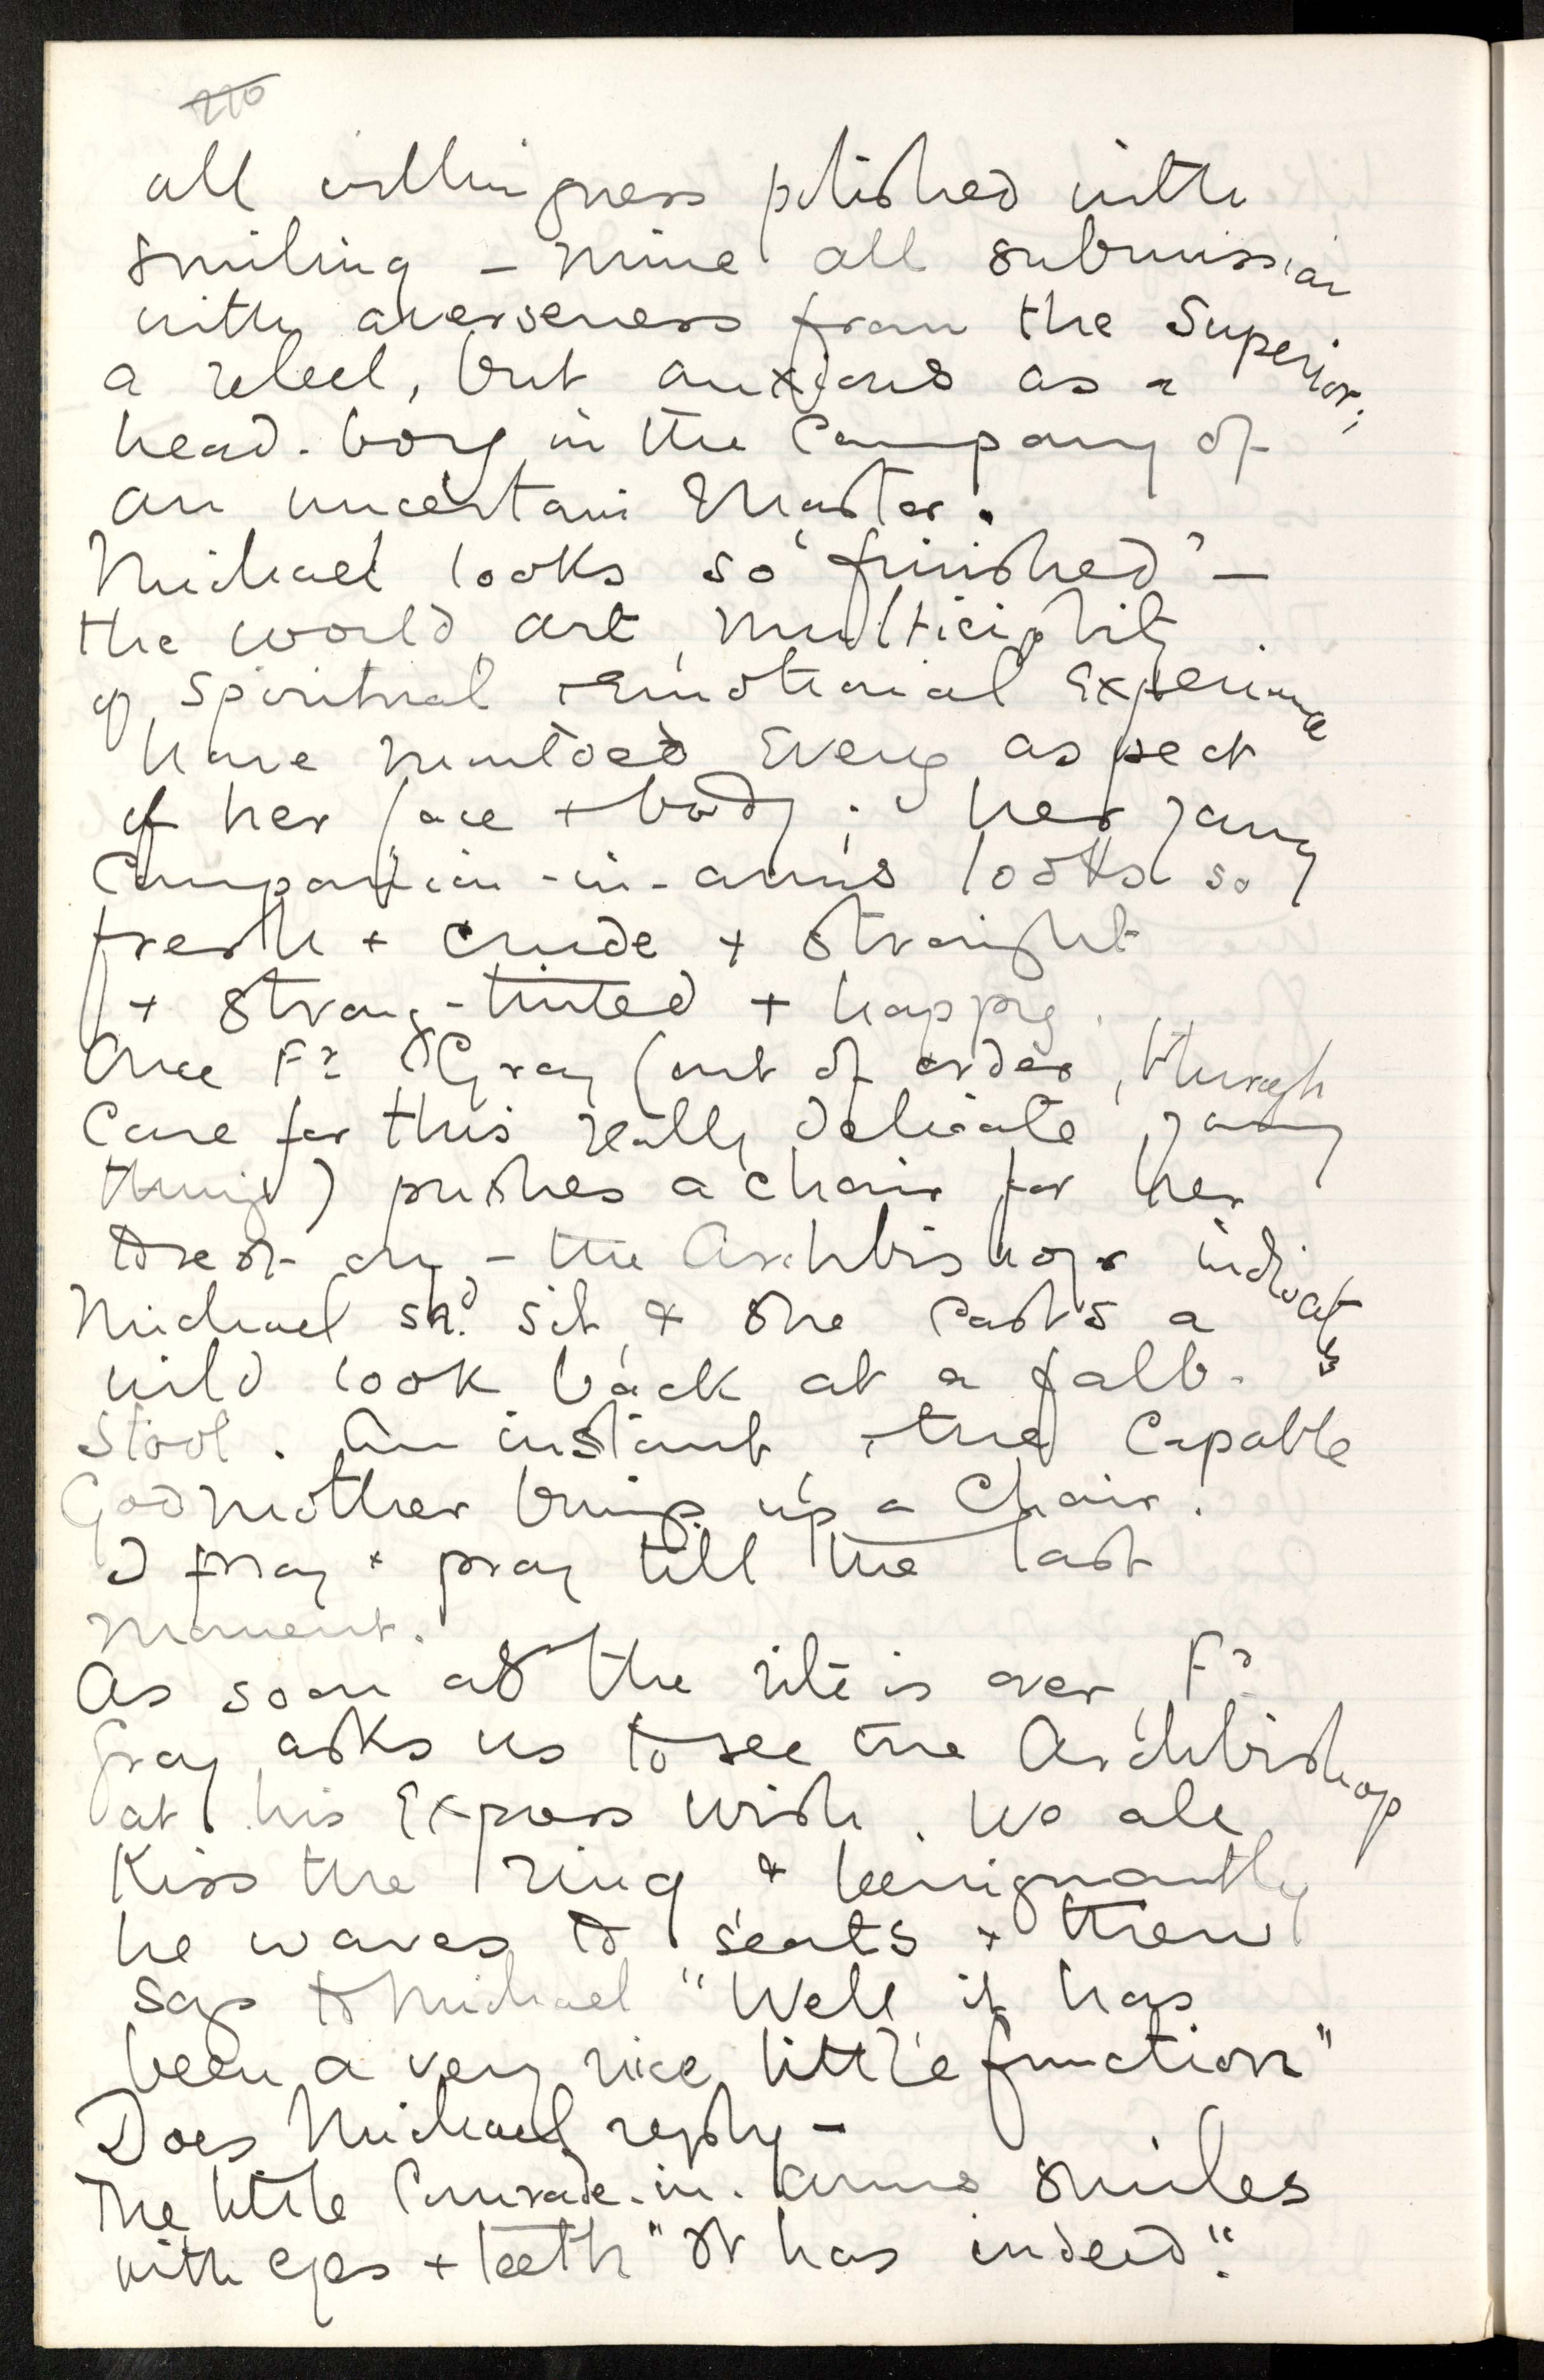 all willingness polished with
smiling – mine all submission
with averseness from the Superior;
a rebel, but anxious as a
head-boy in the Company of
an uncertain Master.
Michael looks so "finished" –
the world, art, multiciplity
of spiritual + emotional Experience
have moulded Every aspect
of her face + body; her young
Companion-in-arms looks so
fresh + crude + straight
+ strong-tinted + happy.
Once Fr Gray (out of order, through
Care for this really delicate young
thing) pushes a chair for her
to sit on – the Archbishop indicates
Michael shd. sit, + she casts a
wild look back at a fald-
stool. An instant, + the Capable
Godmother brings up a Chair.
I pray + pray till the last
moment.
As soon as the rite is over, Fr
Gray asks us to see the Archbishop
at his Express wish. We all
Kiss the ring + benignantly
he waves to seats + then
says to Michael "Well, it has
been a very nice little function"
Does Michael reply –
The little Comrade-in-arms smiles
with eyes + teeth "It has indeed".